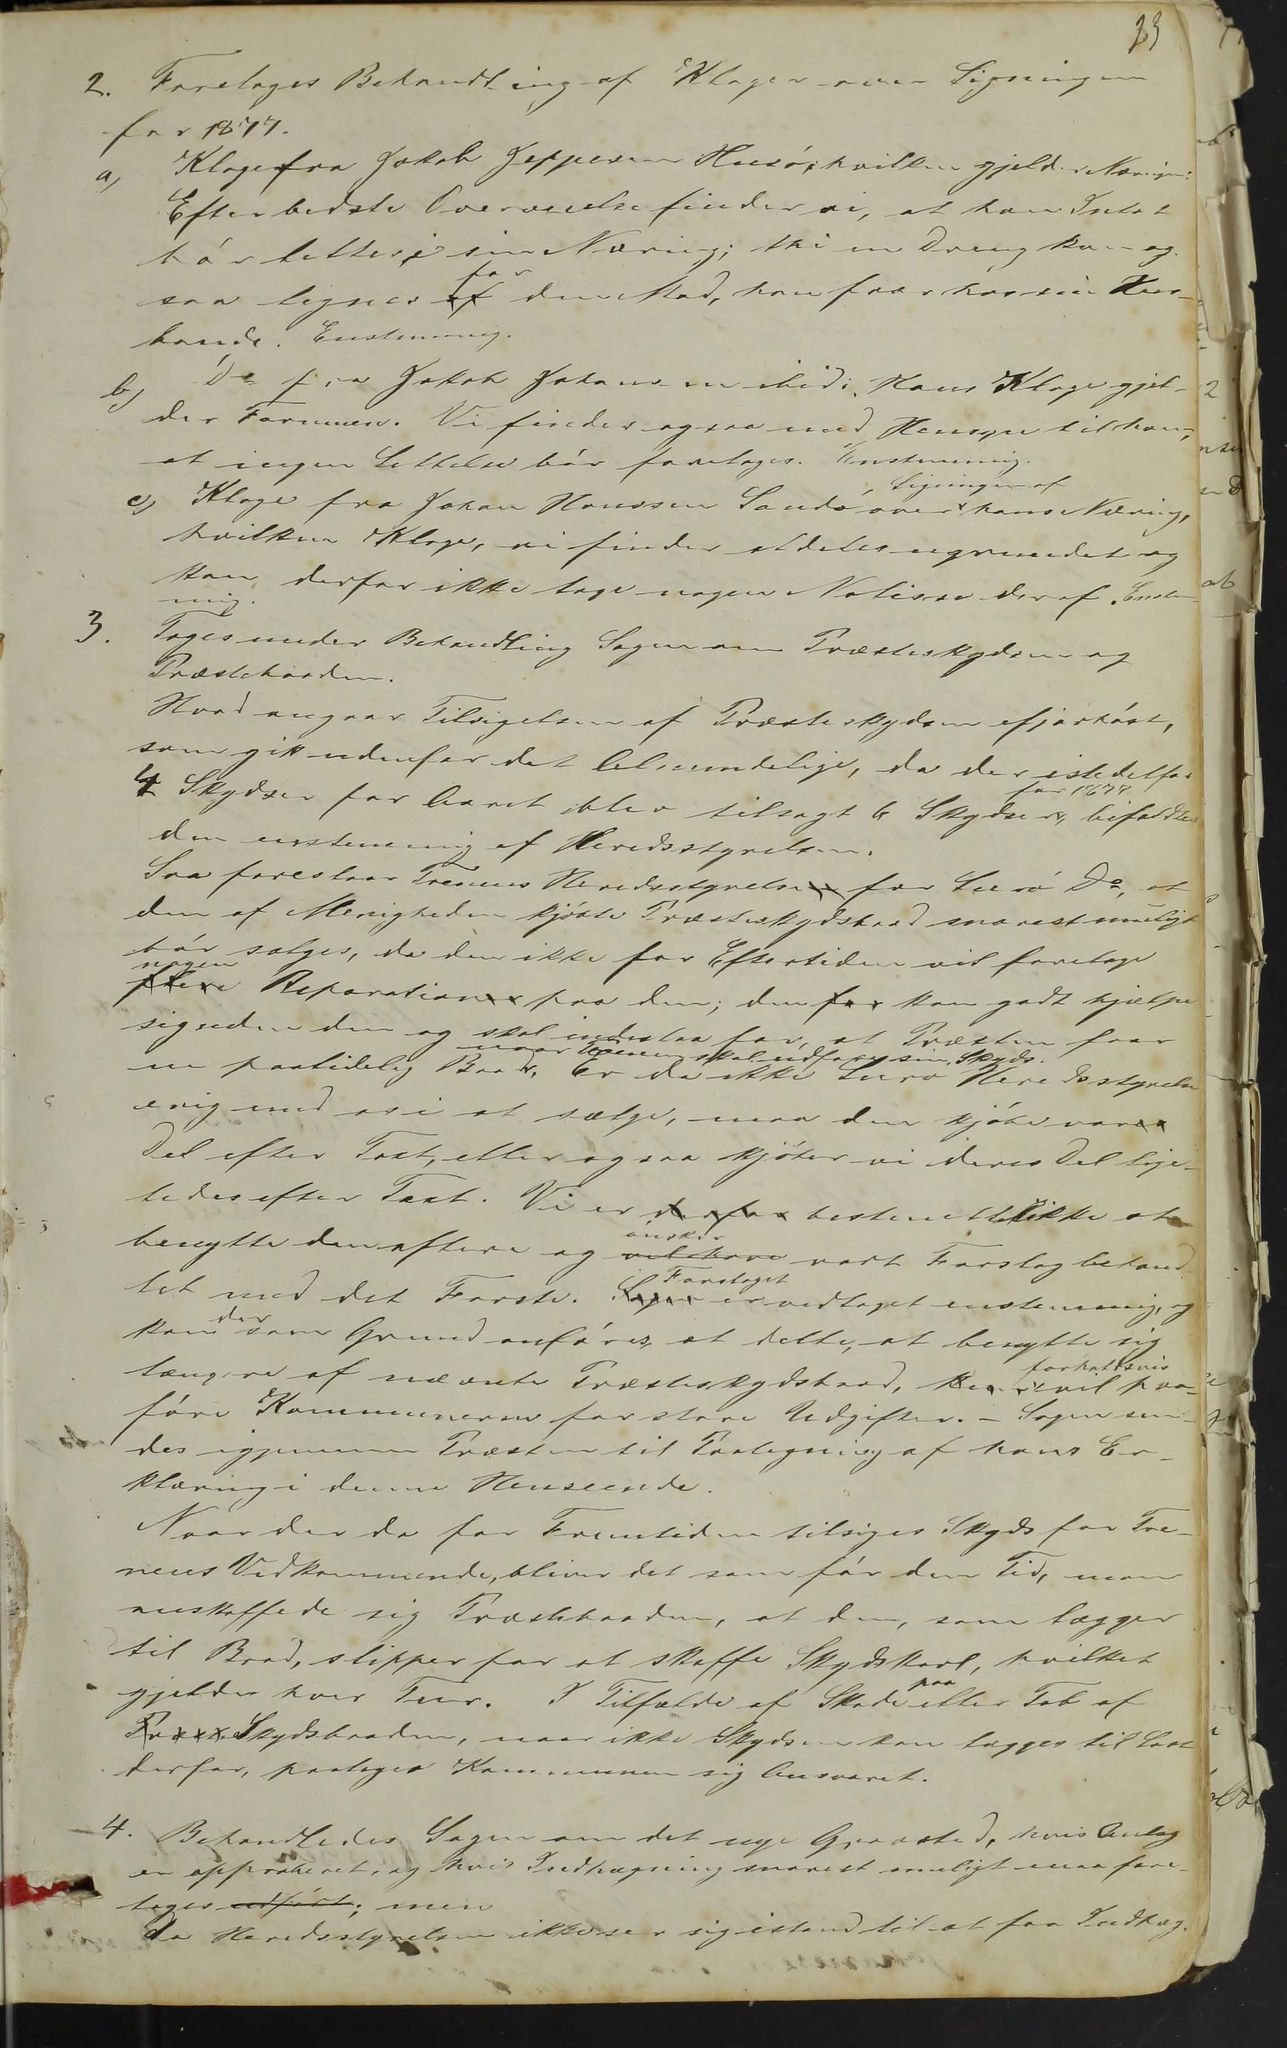 23
2. Foretoges Behandling af Klager over Ligningen
for 1877.
a, Klage fra Jakob Jeppesen Husö, hvilken gjelder Næringen:
Efter bedste Overveielse finder vi, at han Intet
bör lettes i sin Næring; thi en Dreng kan og-
saa lignes for den Mad, han faar hos sin Hus-
bonde. Enstemmig.
b, Do fra Jakob Johansen ibid. Hans Klage gjel-
der Formuen. Vi finder ogsaa med Hensyn til ham,
at ingen Lettelse bör foretages. Enstemmig.
c, Klage fra Johan Hanssen Sandö over Ligningen af hans Næring,
hvilken Klage, vi finder aldeles ugrundet og
kan derfor ikke tage nogen Notisse deraf. Enstem-
mig.
3. Toges under Behandling Sagen om Præsteskydsen og
Præstebaaden.
Hvad angaar Tilsigelsen af Præsteskydsen ifjorhöst,
som gik udenfor det Almindelige, da der istedetfor
4 Skydser for Aaret blev tilsagt 6 Skydser for 1877, bifaldtes
den enstemmig af Heredsstyrelsen.
Saa foreslaar Trænens Heredsstyrelse for Lurö Do, at
den af Menigheden kjöbte Præsteskydsbaad snarest muligt
bör sælges, da den ikke for Eftertiden vil foretage
nogen Reparation paa den; den kan godt hjælpe
sig uden den og skal indestaa for, at Præsten faar
en paalidelig Baad, naar Trænen skal udföre sin Skyds. Er da ikke Lurö Heredsstyrelse
enig med os i at sælge, maa den kjöbe vor
Del efter Taxt, eller ogsaa kjöber vi deres Del lige-
ledes efter Taxt. Vi er bestemt ikke at
benytte den oftere og önsker vort Forslag behand-
let med det Förste. Forslaget er vedtaget enstemmig, og
kan der som Grund anföres, at dette, at benytte sig
længere af nævnte Præsteskydsbaad, vil paa-
före Kommunerne for store Udgifter. – Sagen sen-
des igjennem Præsten til Paategning af hans Er-
klæring i denne Henseende.
Naar der da for Fremtiden tilsiges Skyds for Træ-
nens Vedkommende, bliver det som för den Tid, man
anskaffede sig Præstebaaden, at den, som lægger
til Baad, slipper for at skaffe Skydskarl, hvilket
gjelder hver Tur. I Tilfælde af Skade paa eller Tab af
Skydsbaaden, naar ikke Skydsen kan lægges til Last
derfor, paatager Kommunen sig Ansvaret.
4. Behandledes Sagen om det nye Gravsted, hvis Anlæg
er approberet, og hvis Indhægning snarest muligt maa fore-
tages udfört; men
da Heredsstyrelsen ikke ser sig istand til at faa Indhæg-